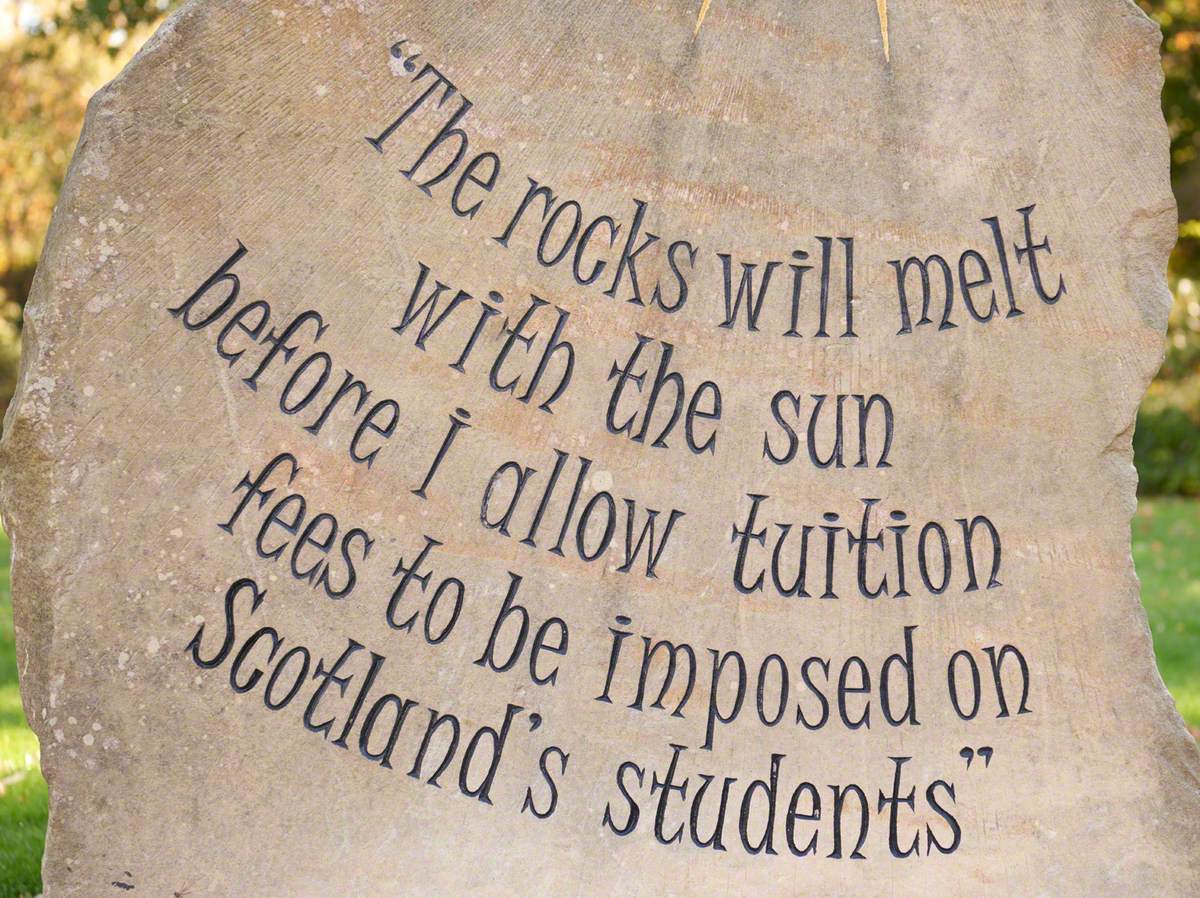 “The rocks will melt
with the sun
before i allow tuition
fees to be imposed on
Scotland’s students”